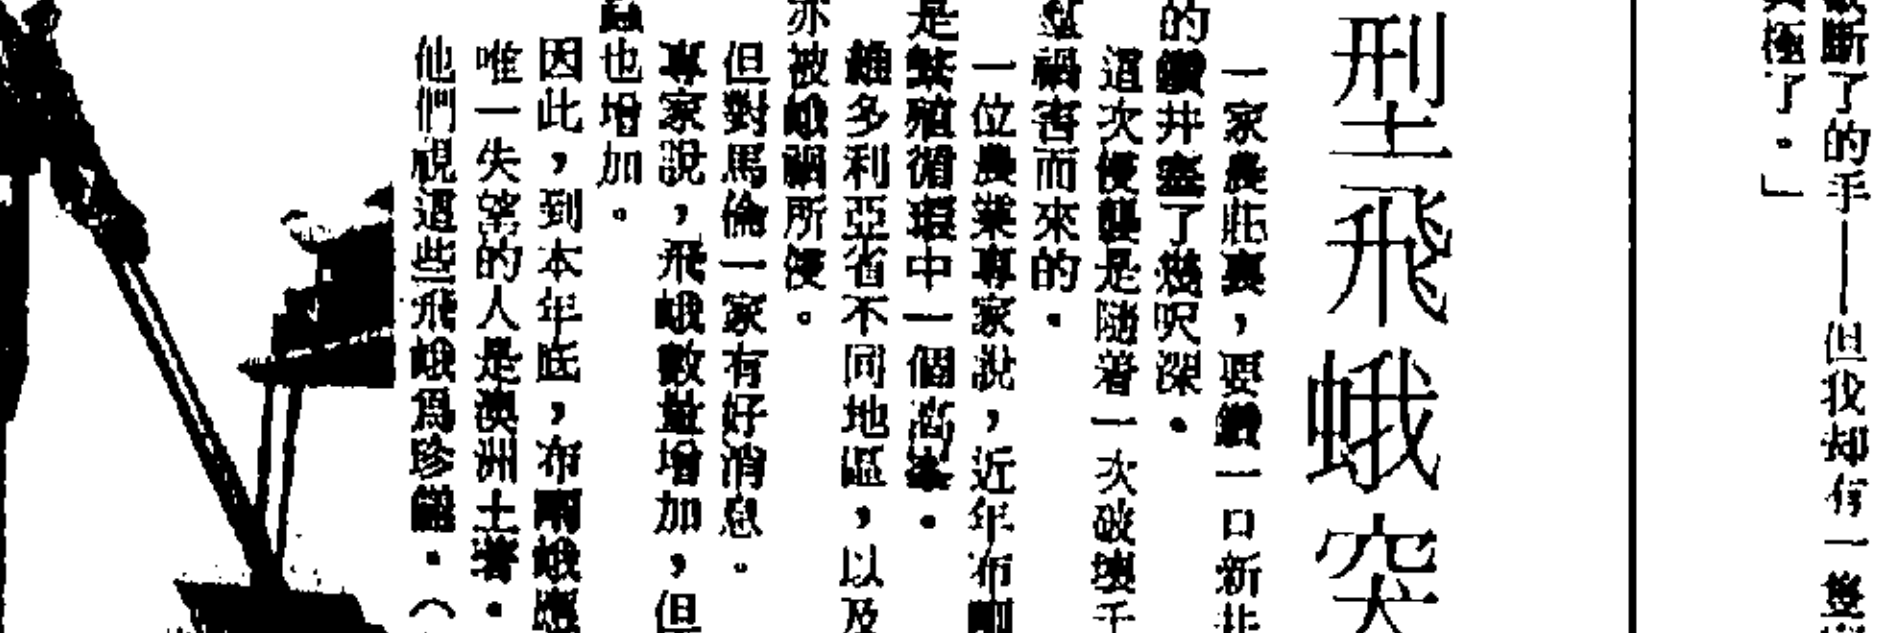 斷了的手——但我却有一隻
極了。」
型飛蛾突
一家農莊裏,要鑽一口新井
的鑽井塞了幾呎深。
這次侵襲是隨着一次破壞千
禍害而來的。
一位農業專家說,近年布
是繁殖循環中一個高峯。
維多利亞省不同地區,以及
亦被蛾禍所侵。
但對馬倫一家有好消息。
專家說,飛蛾數量增加,但
也增加。
因此,到本年底,布蛾應
唯一失望的人是澳洲土著。
他們視這些飛蛾爲珍饈。(